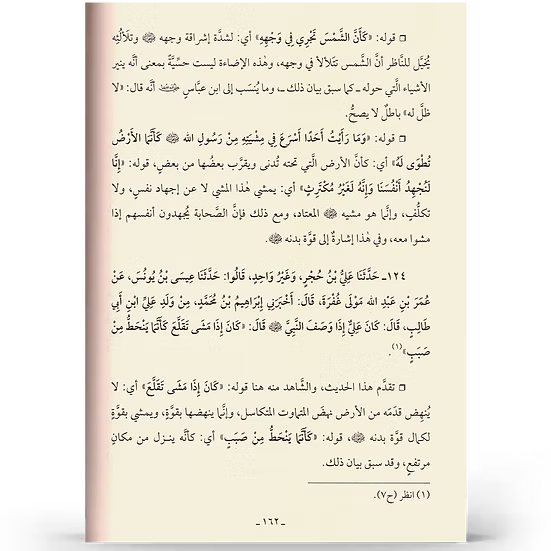 ❒ قوله: «كَأَنَّ الشَّمْسَ تَجْرِي فِي وَجْهِهِ» أي: لشدَّة إشراقة وجهه ﷺ وتلألُئِه
يُخَيَّل للنَّاظر أنَّ الشَّمس تتلألأ في وجهه، وهٰذه الإضاءة ليست حسِّيَّةً بمعنى أنَّه ينير
الأشياء الَّتي حوله ـ كما سبق بيان ذلك ـ، وما يُنسَب إلى ابن عبَّاسٍ أنَّه قال: «لا
ظلَّ له» باطلٌ لا يصحُّ.
❒ قوله: «وَمَا رَأَيْتُ أَحَدًا أَسْرَعَ فِي مِشْيَتِهِ مِنْ رَسُولِ الله ﷺ كَأَنَّمَا الأَرْضُ
تُطْوَى لَهُ» أي: كأنَّ الأرض الَّتي تحته تُدنى ويقرَّب بعضُها من بعضٍ، قوله: «إِنَّا
لَنُجْهِدُ أَنْفُسَنَا وَإِنَّهُ لَغَيْرُ مُكْتَرِثٍ» أي: يمشي هٰذا المشي لا عن إجهاد نفسٍ، ولا
تكلُّفٍ، وإنَّما هو مشيه ﷺ المعتاد، ومع ذلك فإنَّ الصَّحابة يُجهدون أنفسهم إذا
مشوا معه، وفي هٰذا إشارةٌ إلى قوَّة بدنه ﷺ.
١٢٤ـ حَدَّثَنَا عَلِيُّ بْنُ حُجْرٍ، وَغَيْرُ وَاحِدٍ، قَالُوا: حَدَّثَنَا عِيسَى بْنُ يُونُسَ، عَنْ
عُمَرَ بْنِ عَبْدِ الله مَوْلَى غُفْرَةَ، قَالَ: أَخْبَرَنِي إِبْرَاهِيمُ بْنُ مُحَمَّدٍ، مِنْ وَلَدِ عَلِيِّ ابْنِ أَبِي
طَالِبٍ، قَالَ: كَانَ عَلِيٌّ إِذَا وَصَفَ النَّبِيَّ ﷺ قَالَ: «كَانَ إِذَا مَشَى تَقَلَّعَ كَأَنَّمَا يَنْحَطُّ مِنْ
صَبَبٍ»(١).
❒ تقدَّم هذا الحديث، والشَّاهد منه هنا قوله: «كَانَ إِذَا مَشَى تَقَلَّعَ» أي: لا
يُنهِض قدَمَه من الأرض نهضَ المتماوت المتكاسل، وإنَّما ينهضها بقوَّةٍ، ويمشي بقوَّةٍ
لكمال قوَّة بدنه ﷺ، قوله: «كَأَنَّمَا يَنْحَطُّ مِنْ صَبَبٍ» أي: كأنَّه ينـزل من مكانٍ
مرتفعٍ، وقد سبق بيان ذلك.
(١) انظر (ح٧).
ـ ١٦٢ ـ